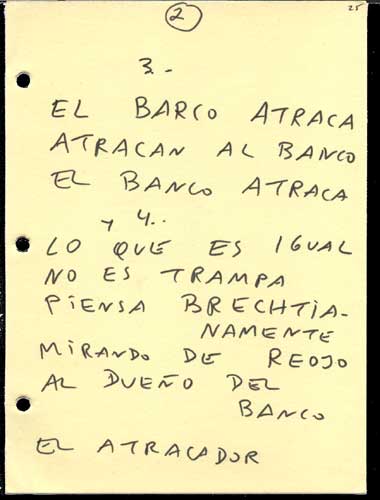 2
25
3.-
EL BARCO ATRACA
ATRACAN AL BANCO
EL BANCO ATRACA
y 4..
LO QUE ES IGUAL
NO ES TRAMPA
PIENSA BRECHTIA-
NAMENTE
MIRANDO DE REOJO
AL DUEÑO DEL
BANCO
EL ATRACADOR